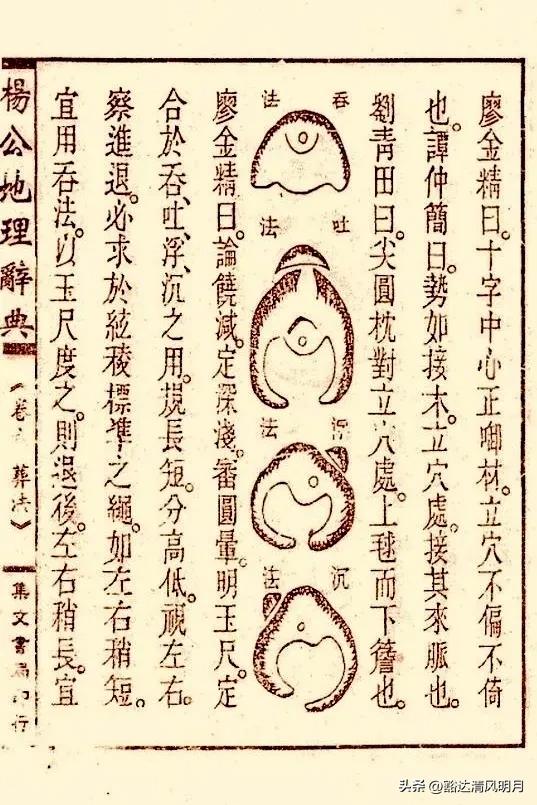 廖金精曰。十字中心正啣材。立穴不偏不倚
也。譚仲簡曰。勢如接木。立穴處。接其來脈也。
劉青田曰。尖圓枕對立穴處。上毬而下簷也。
吞法
吐法
浮法
沉法
廖金精曰。論饒減。定深淺。審圓暈。明玉尺。定
合於吞、吐、浮、沉之用。規長短。分高低。視左右。
察進退。必求於絃稜標準之繩。如左右稍短。
宜用吞法。以玉尺度之。則退後。左右稍長。宜
楊公地理辭典
葬法》
集文書局印行
头条 @豁达清风明月